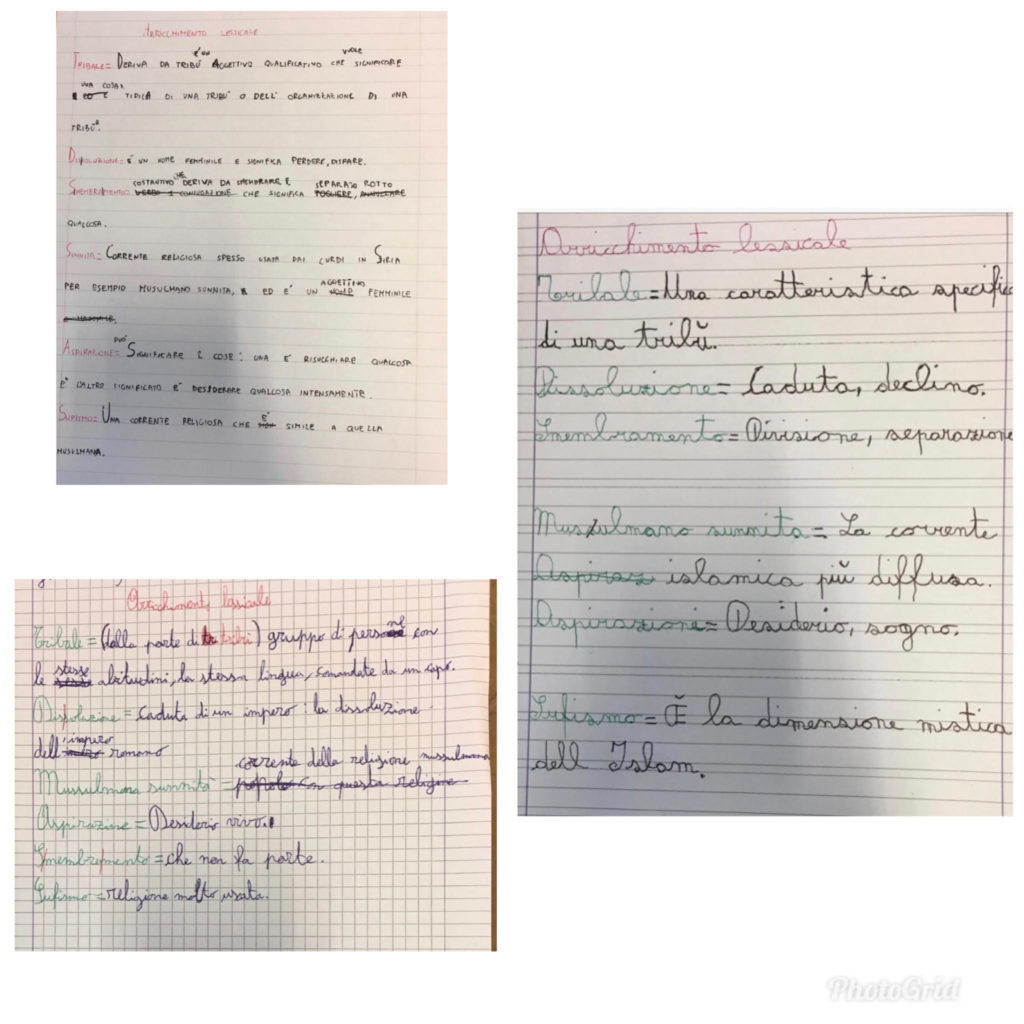 ARRICCHIMENTO LESSICALE
TRIBALE= DERIVA DA TRIBÙ È UN AGGETTIVO QUALIFICATIVO CHE VUOLE SIGNIFICARE
UNA COSA TIPICA DI UNA TRIBÙ O DELL'ORGANIZZAZIONE DI UNA
TRIBÙ.
DISSOLUZIONE= È UN NOME FEMMINILE E SIGNIFICA PERDERE,
SMEMBRAMENTO= COSTANTIVO CHE DERIVA DA SMEMBRARE E CHE SIGNIFICA SEPARATO ROTTO
QUALCOSA.
SUNNITA= CORRENTE RELIGIOSA SPESSO USATA DAI CURDI IN SIRIA
PER ESEMPIO MUSULMANO SUNNITA, ED È UN AGGETTIVO FEMMINILE
ASPIRAZIONE= PUÒ SIGNIFICARE 2 COSE: UNA È RISUCCHIARE QUALCOSA
E L'ALTRO SIGNIFICATO È DESIDERARE QUALCOSA INTENSAMENTE.
SUFISMO= UNA CORRENTE RELIGIOSA CHE È SIMILE A QUELLA
MUSULMANA.
Arricchimento lessicale
Tribale= Una caratteristica specific
di una tribù.
Dissoluzione= Caduta, declino.
Smembramento= Divisione, separazione
Musulmano sunnita= La corrente
Aspiraz islamica più diffusa.
Aspirazioni= Desiderio, sogno.
Sufismo= È la dimensione mistica
dell Islam.
Arricchimento lessicale
Tribale = (dalla parte di tribù) gruppo di persone con
le stesse abitudini, la stessa lingua, comandate da un capo.
Dissoluzione = caduta di un impero: la dissoluzione
dell'impero romano
Mussulmana sunnità = corrente della religione mussulmana
popolo con questa religione
Aspirazione = Desiderio vivo.
Smembramento = che non fa parte.
Sufismo = religione molto usata.
PhotoGrid